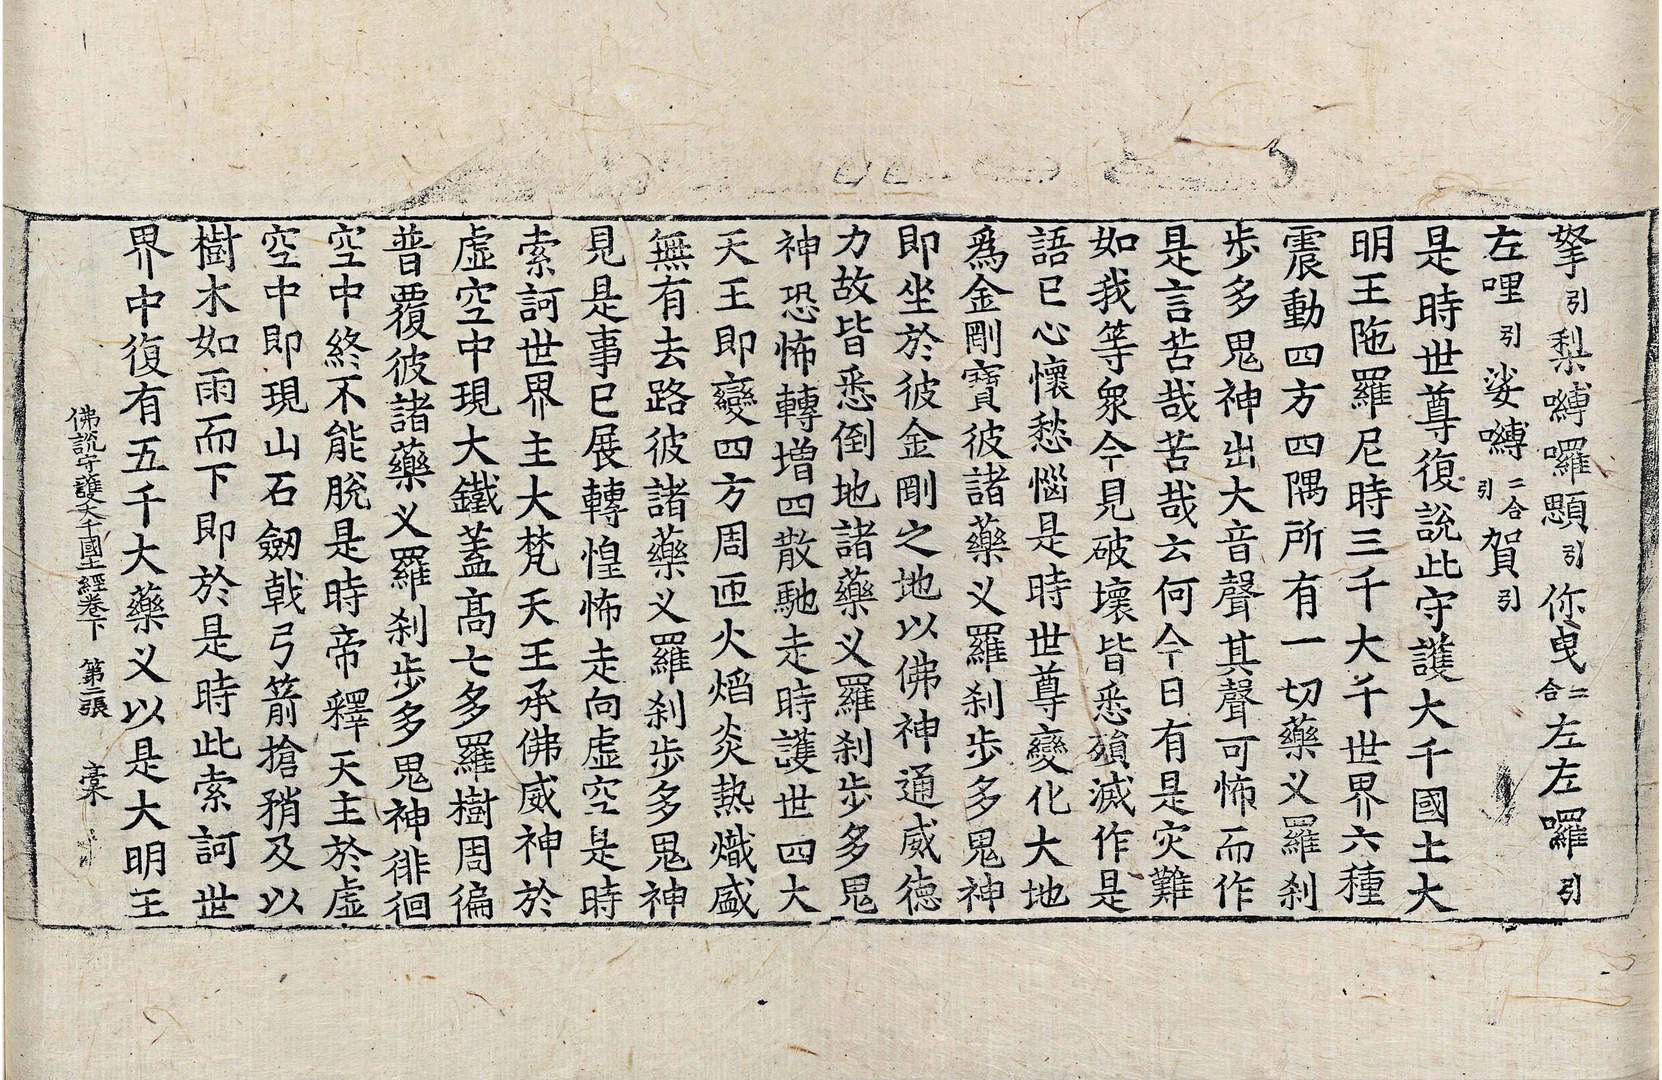 拏引梨嚩囉顆引儞曳二合左左囉引
左哩引娑嚩二合引賀引
是時世尊復說此守護大千國土大
明王陁羅尼時三千大千世界六種
震動四方四隅所有一切藥义羅刹
步多鬼神出大音聲其聲可怖而作
是言苦哉苦哉云何今日有是灾難
如我等衆今見破壞皆悉殞滅作是
語已心懷愁惱是時世尊變化大地
爲金剛寶彼諸藥义羅刹步多鬼神
即坐於彼金剛之地以佛神通威德
力故皆悉倒地諸藥义羅刹步多鬼
神恐怖轉增四散馳走時護世四大
天王即變四方周匝火熖炎熱熾盛
無有去路彼諸藥义羅刹步多鬼神
見是事已展轉惶怖走向虛空是時
索訶世界主大梵天王承佛威神於
虛空中現大鐵蓋高七多羅樹周徧
普覆彼諸藥义羅刹步多鬼神徘徊
空中終不能脫是時帝釋天主於虛
空中即現山石劒戟弓箭搶矟及以
樹木如雨而下即於是時此索訶世
界中復有五千大藥义以是大明王
佛說守護大千國土經卷下 第二張 稾